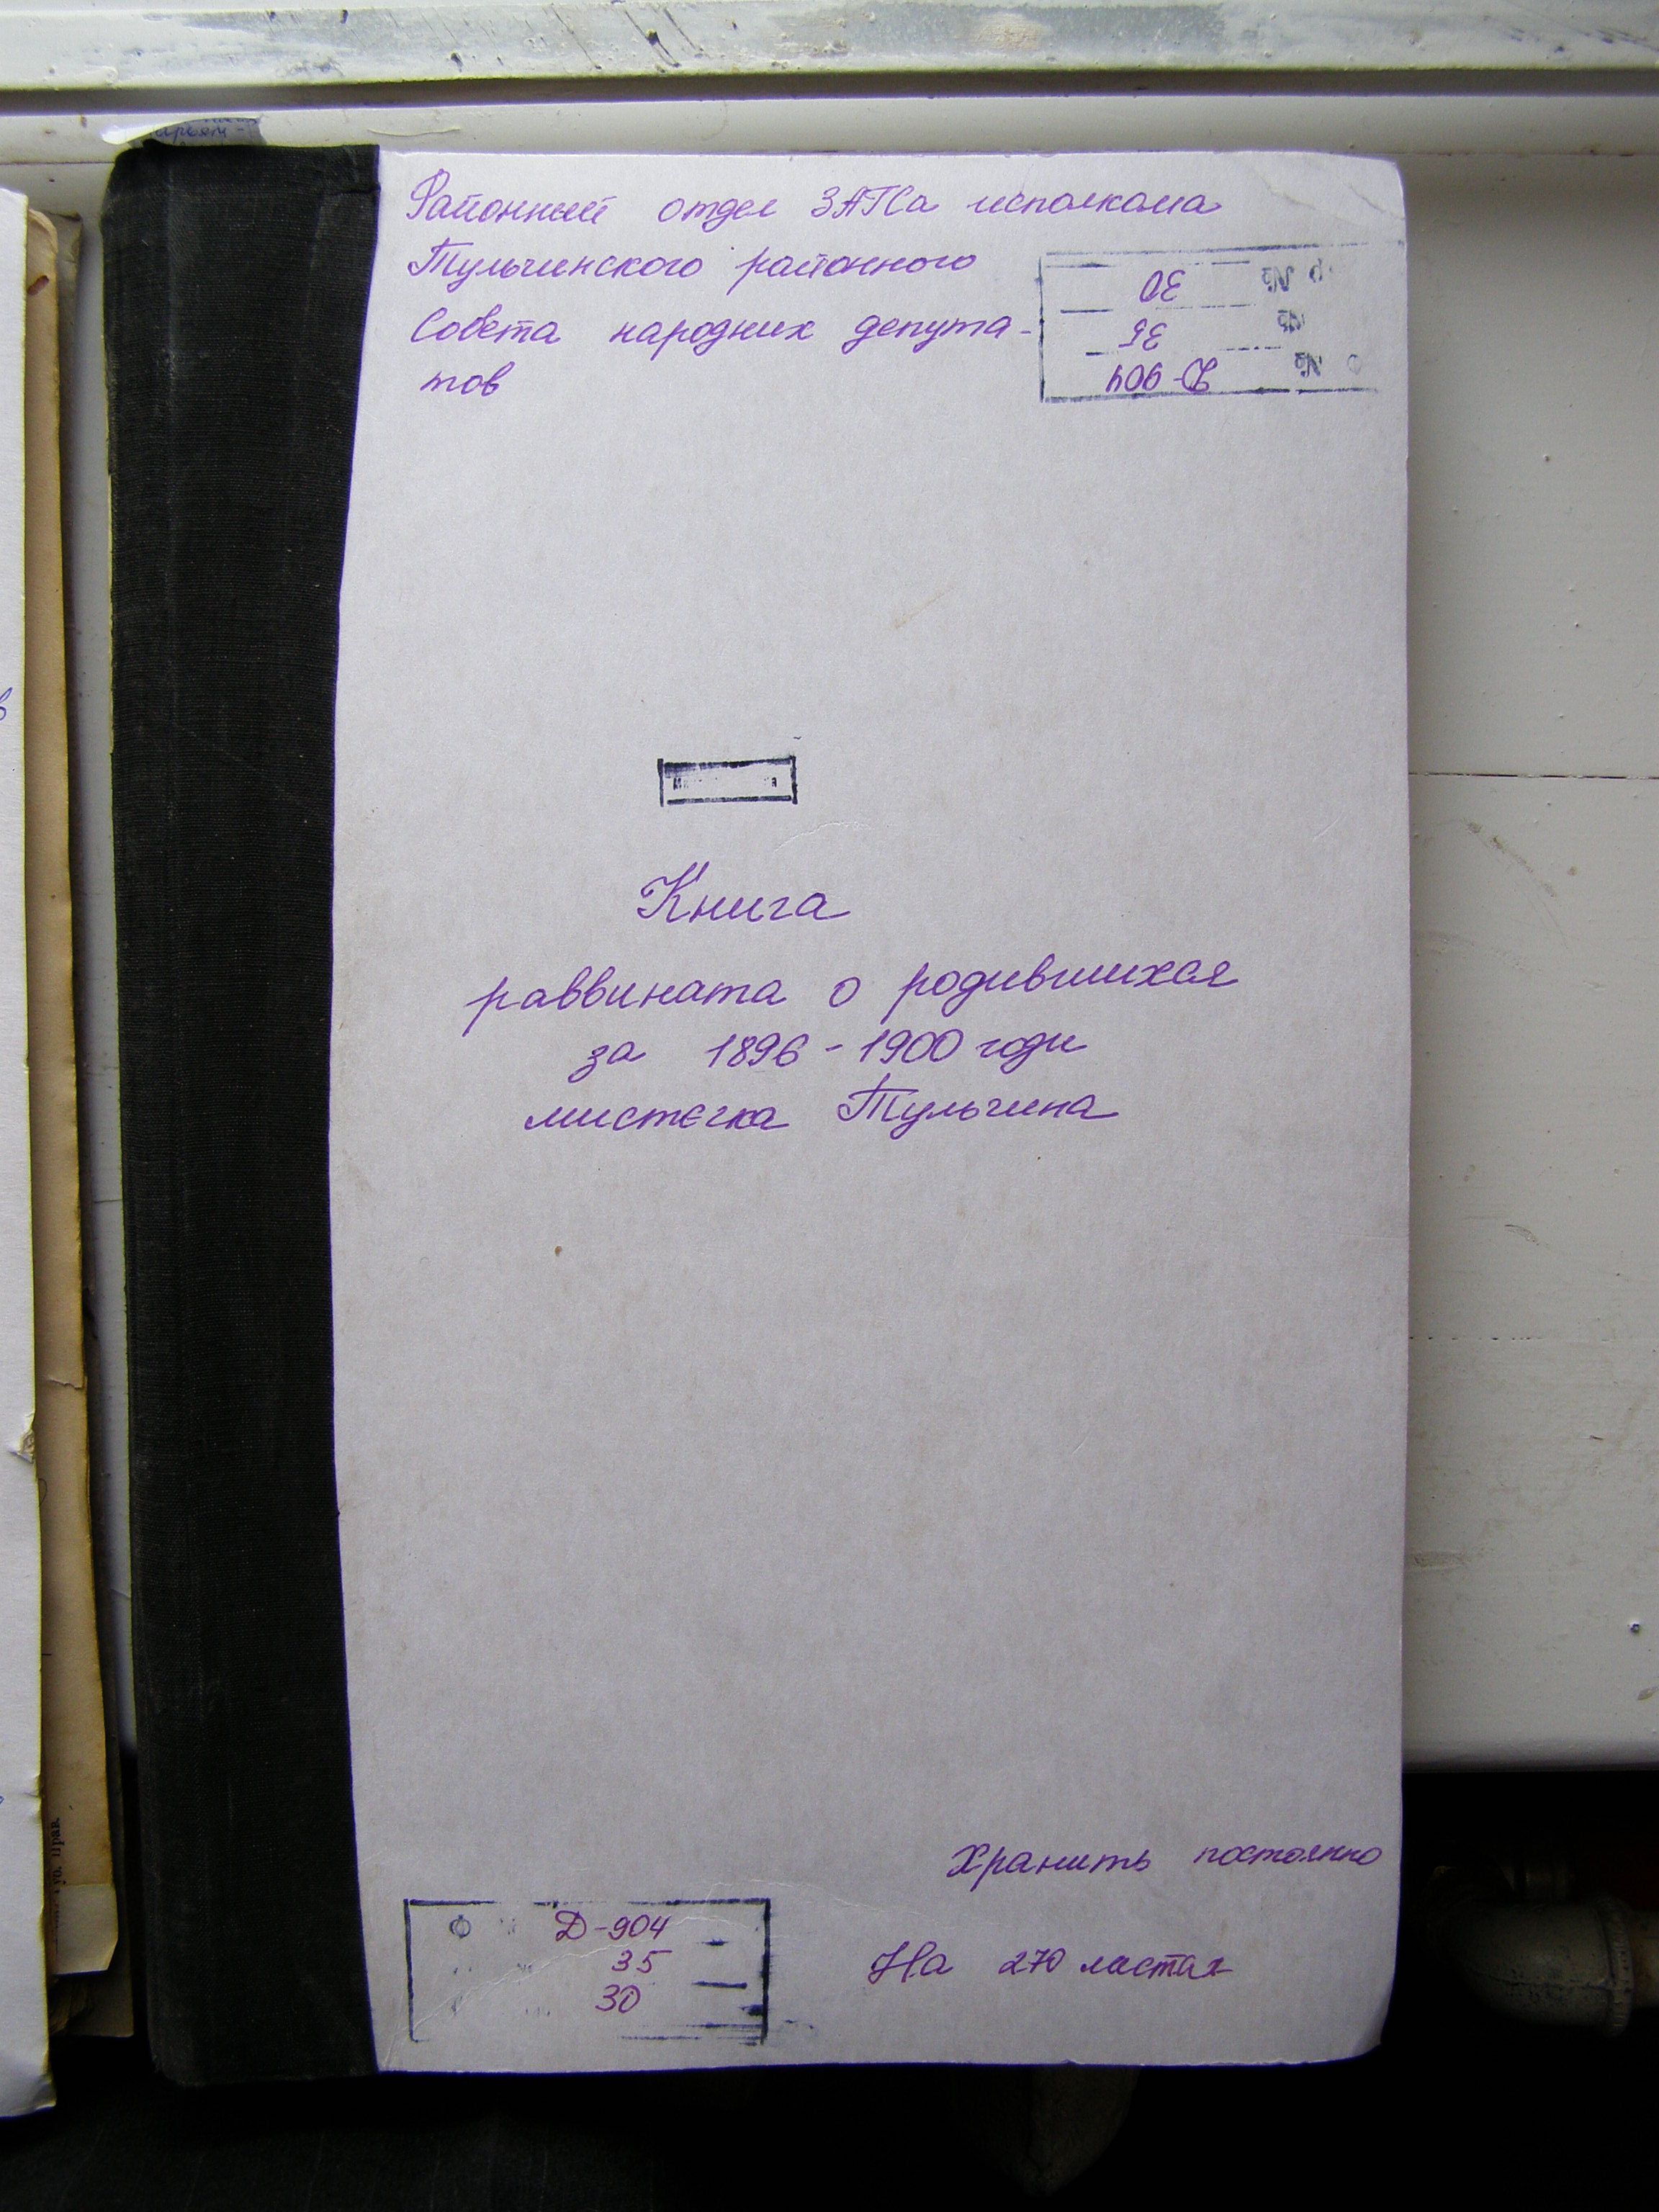 Районный отдел ЗАГСа исполкома
Тульчинского районного
Совета народних депута-
тов
р №
30
35
№
Д-904
Книга
раввината о родившихся
за 1896-1900 годи
мистечка Тульчина
Хранить постоянно
Ф
Д-904
35
30
На 270 листах